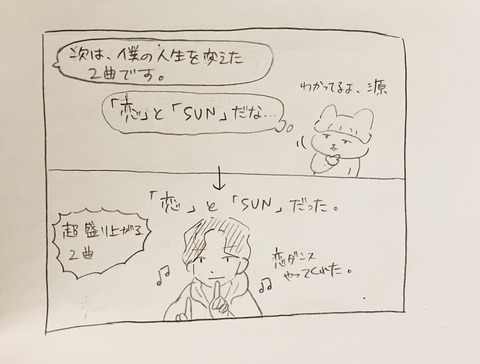 次は、僕の人生を変えた
2曲です。
「恋」と「SUN」だな…
わかってるよ、源
「恋」と「SUN」だった。
超盛り上がる
2曲
恋ダンス
やってくれた。